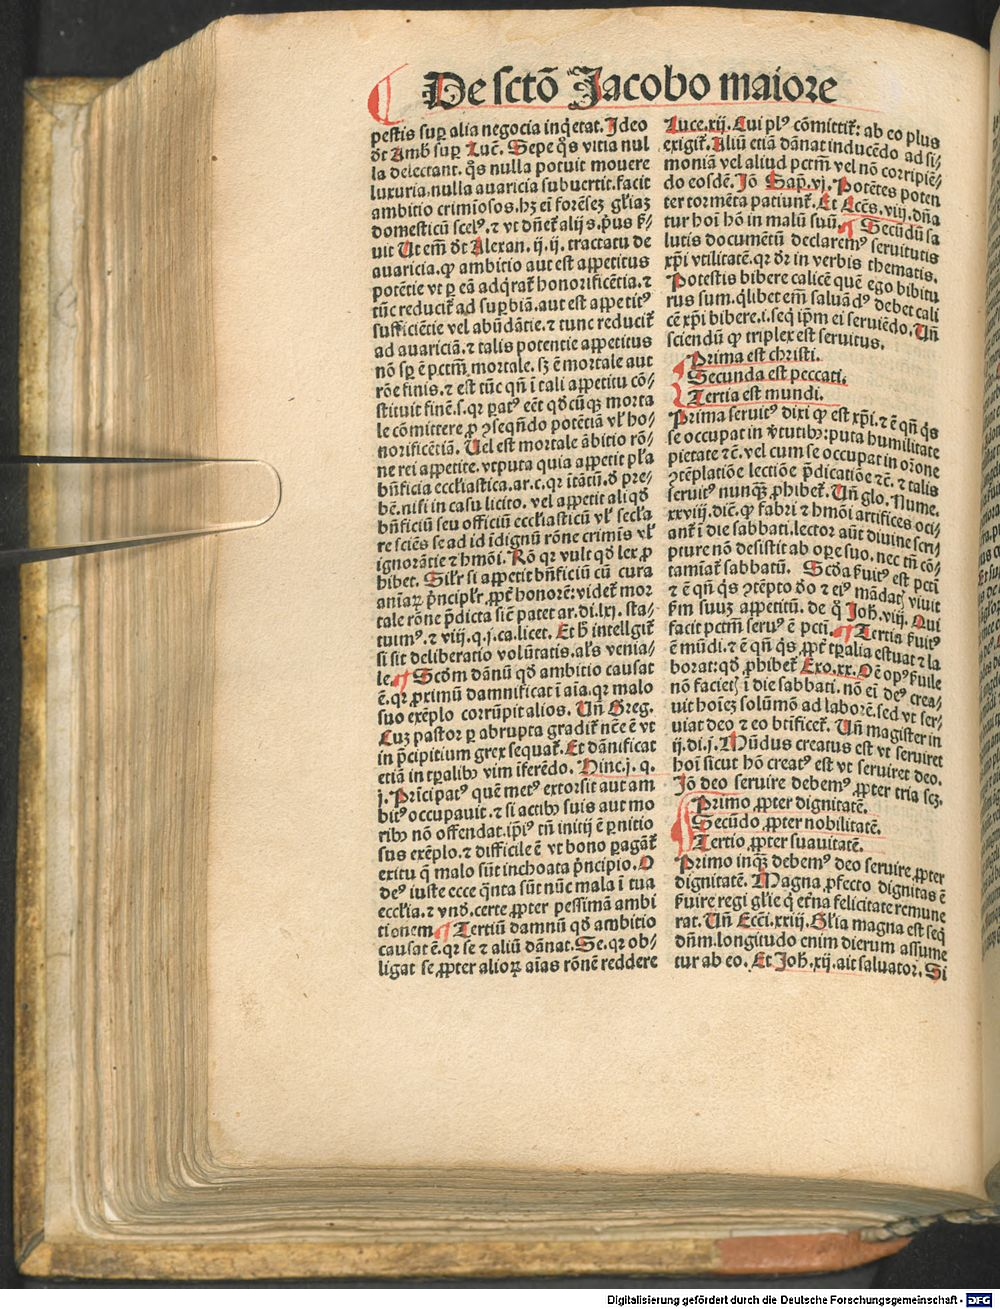 De sctō Jacobo maiore
pestis suꝑ alia negocia inq̇etat. Ideo
dt Amb̄ suꝑ Luč. Sepe q̊s vitia nul
la delectant. q̊s nulla potuit mouere
luxuria. nulla auaricia subuertit. facit
ambitio crimīosos. hꝫ eī forēseꝫ gl̄iaꝫ
domesticū scelꝰ. ⁊ vt dn̄et̄ alijs. p̱us ẜ-
uit Ut em̄ dt Alexan. ij. ij. tractatu de
auaricia. ꝙ ambitio aut est appetitus
potētie vt ꝑ eā adq̇rat̄ honorificētia. ⁊
tūc reducit̄ ad suꝑbiā. aut est appetitꝰ
sufficiētie vel abūdātie. ⁊ tunc reducit̄
ad auariciā. ⁊ talis potentie appetitus
nō sꝑ ē pctm̄ mortale. sꝫ ē mortale aut
rōe finis. ⁊ est tūc qn̄ i tali appetitu cō-
stituit finē. s. qꝛ ꝑatꝰ eēt qd̄cūqꝫ morta
le cōmittere ꝓ ꝯseqn̄do potētiā vl̄ ho-
norificētiā. Uel est mortale ābitio rō-
ne rei appetite. vtputa quia appetit pl̄a
bn̄ficia eccl̄iastica. ar. c. qꝛ itātū. d̄ pre-
bē. nisi in casu licito. vel appetit aliqd̄
bn̄ficiū seu officiū eccl̄iasticū vl̄ secl̄a
re sciēs se ad id īdignū rōne crimīs vl̄
ignorātie ⁊ hmōi. Rō qꝛ vult qd̄ lex ꝓ
hibet. Silr̄ si appetit bn̄ficiū cū cura
aniaꝝ p̄ncipl̄r ꝓpt̄ honorē: videt̄ mor
tale rōne p̄dicta sic̄ patet ar. di. lxj. sta-
tuimꝰ. ⁊ viij. q. j. ca. licet. Et h̄ intellgit̄
si sit deliberatio volūtatis. al̄s venia-
le. Scd̄m dānū qd̄ ambitio causat
ē. qꝛ ꝓximū damnificat i aīa. qꝛ malo
suo exēplo corrūpit alios. Un̄ Greg.
Cuꝫ pastor ꝑ abrupta gradit̄ nēē ē vt
in p̄cipitium grex sequat̄. Et dānificat
etiā in tp̄alibꝰ vim īferēdo. Hinc. j. q.
j. Prīcipatꝰ quē metꝰ extorsit aut am
bitꝰ occupauit. ⁊ si actibꝰ suis aut mo
ribꝰ nō offendat. ip̄iꝰ tn̄ initij ē ꝑnitio
sus exēplo. ⁊ difficile ē vt bono ꝑagat̄
exitu q̄ malo sūt inchoata p̄ncipio. O
deꝰ iuste ecce q̄nta sūt nūc mala i tua
eccl̄ia. ⁊ vnd̄. certe ꝓpter pessimā ambi
tionem Tertiū damnū qd̄ ambitio
causat ē. qꝛ se ⁊ aliū dānat. Se. qꝛ ob-
ligat se ꝓpter alioꝝ aīas rōnē reddere
Luce. xij. Cui plꝰ cōmittit̄: ab eo plus
exigit̄. Aliū etiā dānat inducēdo ad si-
moniā vel aliud pctm̄ vel nō corripiē-
do eosdē. Jō Sap̄. vj. Potētes poten
ter tormēta patiunt̄. Et Ecc̄s. viij. dn̄a
tur hoī hō in malū suū. Secūdū sa
lutis documētū declaremꝰ seruitutis
xp̄i vtilitatē. qꝛ dr̄ in verbis thematis.
Potestis bibere calicē quē ego bibitu
rus sum. q̇libet em̄ saluādꝰ debet cali
cē xp̄i bibere. i. seq̇ ip̄m ei seruiēdo. Un̄
sciendū ꝙ triplex est seruitus.
Prima est christi.
Secunda est peccati.
Tertia est mundi.
Prima seruitꝰ dixi ꝙ est xp̄i. ⁊ ē qn̄ q̊s
se occupat in v̄tutibꝰ: puta humilitate
pietate ⁊c̄. vel cum se occupat in orōne
ꝯtēplatiōe lectiōe p̄dicatiōe ⁊c̄. ⁊ talis
seruitꝰ nunqꝫ ꝓhibet̄. Un̄ glo. Nume.
xxviij. dic̄. ꝙ fabri ⁊ hmōi artifices oci-
ant̄ i die sabbati. lector aūt diuine scri-
pture nō desistit ab oꝑe suo. nec tn̄ cō-
tamīat̄ sabbatū. Scd̄a ẜuitꝰ est pctī
⁊ ē qn̄ q̊s ꝯtēpto dō ⁊ eiꝰ mādatꝭ viuit
ẜm suuꝫ appetitū. de q̊ Joh̄. viij. Qui
facit pctm̄ seruꝰ ē pcti. Tertia ẜuitꝰ
ē mūdi. ⁊ ē qn̄ q̊s ꝓpt̄ tp̄alia estuat ⁊ la
borat: qd̄ ꝓhibet̄ Exo. xx. Oē opꝰ ẜuile
nō facietꝭ i die sabbati. nō eī deꝰ crea-
uit hoīeꝫ solūmō ad laborē. sed vt ser-
uiat deo ⁊ eo btīficet̄. Un̄ magister in
ij. di. j. Mūdus creatus est vt seruiret
hoī sicut hō creatꝰ est vt seruiret deo.
Jō deo seruire debemꝰ ꝓpter tria scꝫ.
Primo ꝓpter dignitatē.
Secūdo ꝓpter nobilitatē.
Tertio ꝓpter suauitatē.
Primo inqꝫ debemꝰ deo seruire ꝓpter
dignitatē. Magna ꝓfecto dignitas ē
ẜuire regi gl̄ie q̇ et̄na felicitate remune
rat. Un̄ Ecci. xxiij. Gl̄ia magna est seq̇
dn̄m. longitudo enim dierum assume
tur ab eo. Et Joh̄. xij. ait saluator. Si
Digitalisierung gefördert durch die Deutsche Forschungsgemeinschaft - DFG